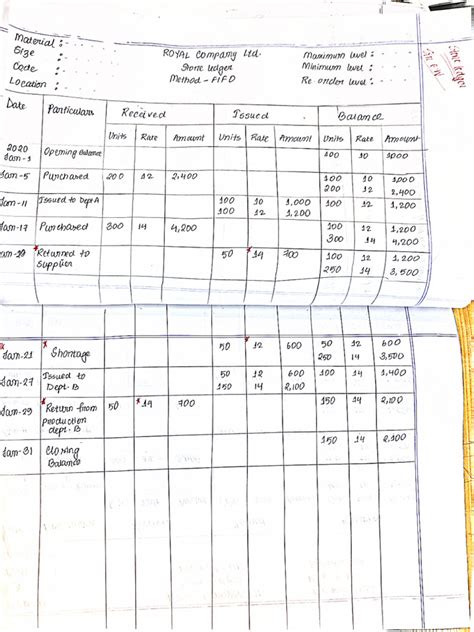 Material : - - -
Size : - - -
Code : - - -
Location : - - -
ROYAL Company Ltd.
Store ledger
Method - FIFO
Maximum level : - -
Minimum level : - -
Re-order level : - -
Store ledger
Date Particulars Received Issued Balance
Units Rate Amount Units Rate Amount Units Rate Amount
2020
Jan-1 Opening Balance 100 10 1000
Jan-5 Purchased 200 12 2,400 100 10 1,000
200 12 2,400
Jan-11 Issued to Dept A 100 10 1,000 100 12 1,200
100 12 1,200
Jan-17 Purchased 300 14 4,200 100 12 1,200
300 14 4,200
Jan-19 *Returned to 50 *14 700 100 12 1,200
Supplier 250 14 3,500
Jan-21 Shortage 50 *12 600 50 12 600
250 14 3,500
Jan-27 Issued to 50 12 600 100 14 1,400
Dept. B 150 14 2,100
Jan-29 *Return from 50 *14 700 150 14 2,100
production
dept. B
Jan-31 Closing 150 14 2,100
Balance